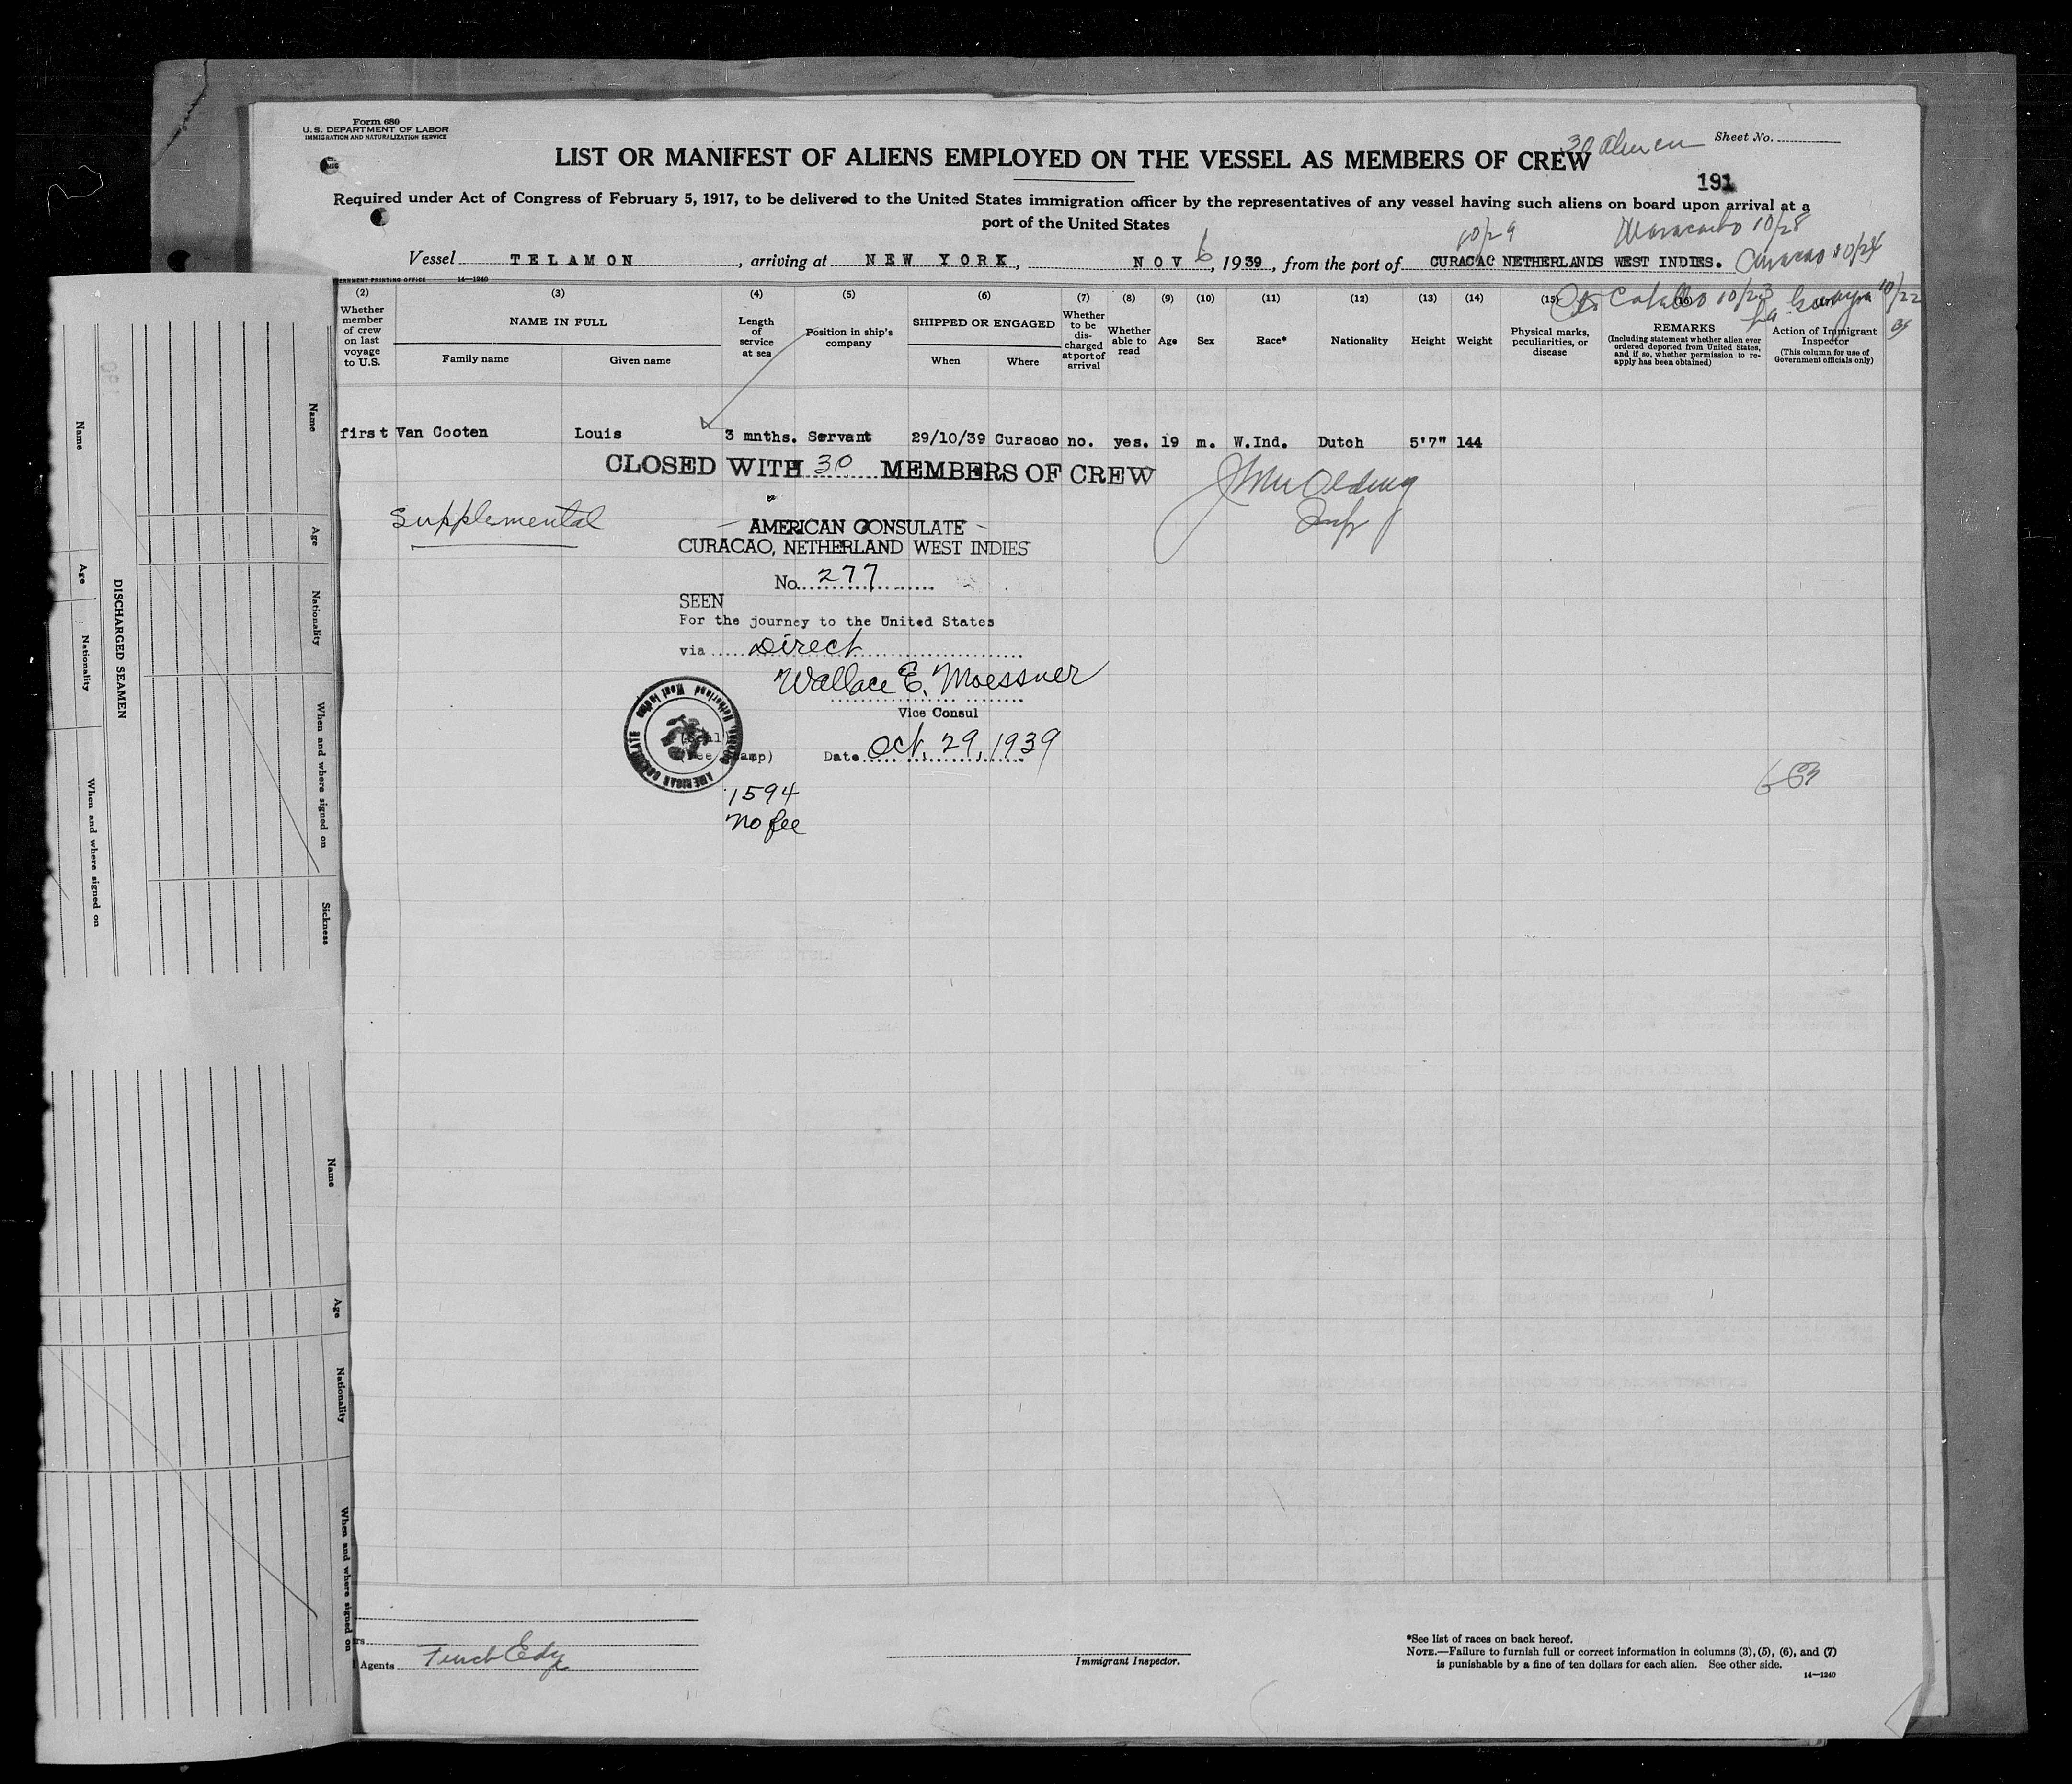 Form 680
U. S. DEPARTMENT OF LABOR
IMMIGRATION AND NATURALIZATION SERVICE
Sheet No.
LIST OR MANIFEST OF ALIENS EMPLOYED ON THE VESSEL AS MEMBERS OF CREW
30
191
Required under Act of Congress of February 5, 1917, to be delivered to the United States immigration officer by the representatives of any vessel having such aliens on board upon arrival at a
port of the United States
10/29 Maracaibo 10/28
Vessel TELAMON, arriving at NEW YORK, NOV 6, 1939, from the port of CURACAO NETHERLANDS WEST INDIES. Curacao 10/24
Cabello 10/23 La Guayra 10/22
GOVERNMENT PRINTING OFFICE 14—1240
(2) (3) (4) (5) (6) (7) (8) (9) (10) (11) (12) (13) (14) (15) (16)
Whether member of crew on last voyage to U.S.
NAME IN FULL
Family name
Given name
Length of service at sea
Position in ship's company
SHIPPED OR ENGAGED
When
Where
Whether to be discharged at port of arrival
Whether able to read
Age
Sex
Race*
Nationality
Height
Weight
Physical marks, peculiarities, or disease
REMARKS
(Including statement whether alien ever ordered deported from United States, and if so, whether permission to reapply has been obtained)
Action of Immigrant Inspector
(This column for use of Government officials only)
first Van Cooten Louis 3 mnths. Servant 29/10/39 Curacao no. yes. 19 m. W.Ind. Dutch 5'7" 144
CLOSED WITH 30 MEMBERS OF CREW
Supplemental
AMERICAN CONSULATE
CURACAO, NETHERLAND WEST INDIES
No. 277
SEEN
For the journey to the United States
via Direct
Wallace E. Moessner
Vice Consul
Date Oct. 29, 1939
AMERICAN CONSULATE Netherland West Indies
1594
No fee
Name
Age
Nationality
When and where signed on
Sickness
DISCHARGED SEAMEN
Name
Age
Nationality
When and where signed on
Name
Age
Nationality
When and where signed on
Agents
Immigrant Inspector.
*See list of races on back hereof.
NOTE.—Failure to furnish full or correct information in columns (3), (5), (6), and (7)
is punishable by a fine of ten dollars for each alien. See other side.
14—1240